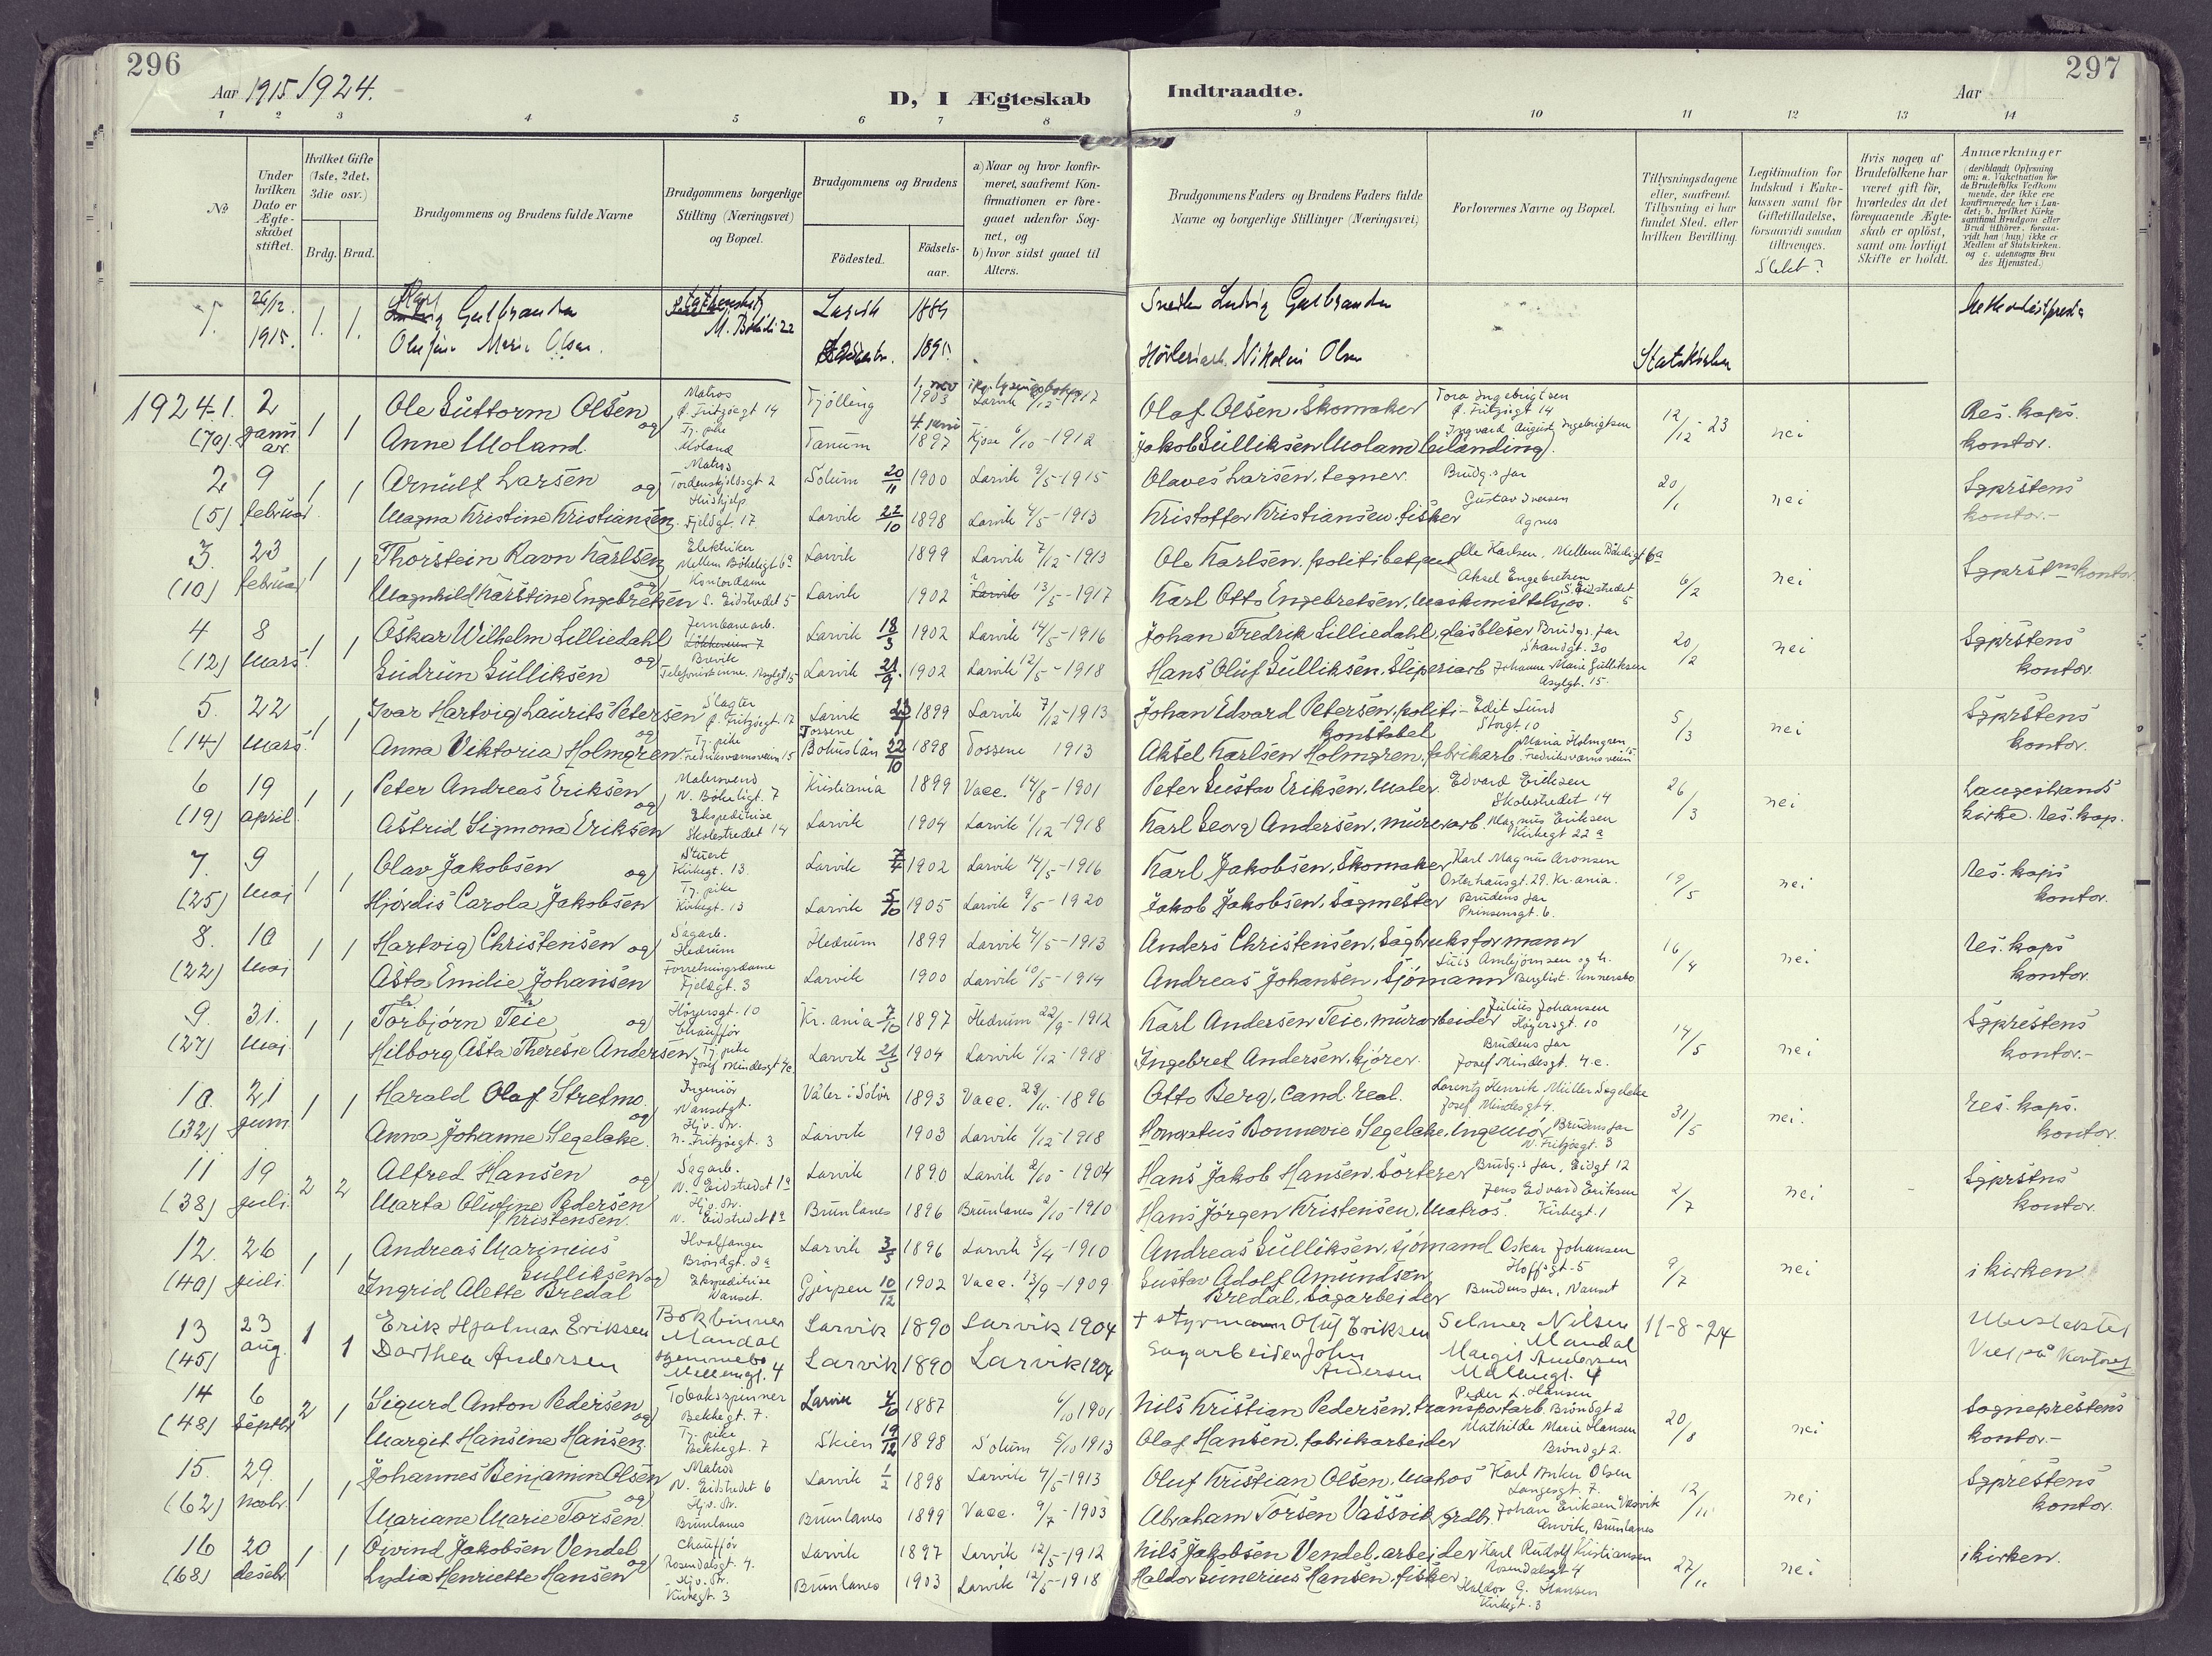 296
Aar 1915/1924.
D, I Ægteskab
Indtraadte.
Aar
297
1 2 3 4 5 6 7 8 9 10 11 12 13 14
№
Under hvilken Dato er Ægteskabet stiftet.
Hvilket Gifte (1ste, 2det, 3die osv.)
Brdg. Brud.
Brudgommens og Brudens fulde Navne
Brudgommens borgerlige Stilling (Næringsvei) og Bopæl.
Brudgommens og Brudens
Födested.
Födselsaar.
a) Naar og hvor konfirmeret, saafremt Konfirmationen er foregaaet udenfor Sognet, og
b) hvor sidst gaaet til Alters.
Brudgommens Faders og Brudens Faders fulde Navne og borgerlige Stillinger (Næringsvei)
Forlovernes Navne og Bopæl.
Tillysningsdagene eller, saafremt Tillysning ei har fundet Sted, efter hvilken Bevilling.
Legitimation for Indskud i Enkekassen samt for Giftetilladelse, forsaavidt saadan tiltrænges.
Hvis nogen af Brudefolkene har været gift för, hvorledes da det foregaaende Ægteskab er oplöst, samt om lovligt Skifte er holdt.
Anmærkninger (deriblandt Oplysning om: a. Vakcination for de Brudefolks Vedkommende, der ikke ere konfirmerede her i Landet; b. hvilket Kirke samfund Brudgom eller Brud tilhörer, forsaavidt han (hun) ikke er Medlem af Statskirken. og c. udensogns Brudes Hjemsted.)
26/12 1915. 1. 1. Karl Gulbrandsen M. Bökeligt 22 Larvik 1889 Ludvig Gulbrandsen
Marie Olsen. 1891. Nikolai Olsen Statskirken
1924 1. 2 1 1 Ole Guttorm Olsen og Matros Ø. Fritzøegt 14 Tjölling 1. nov 1903 Larvik 1917 Olaf Olsen. Skomaker Tora Ingebrigtsen Ø. Fritzögt 14 12/12-23 nei Res. kaps.
(70) januar Anne Moland. Tj. pike Moland Tanum 4. juni 1897 Kjose 6/10-1912 Jakob Gulliksen Moland Ingvard August Ingebrigtsen kontor.
2 9 1 1 Arnulf Larsen og Matros Tordenskjoldsgt 2 Solum 20/11 1900 Larvik 9/5-1915 Olaves Larsen, tegner. Brudg.s far 20/1 nei Sgprstens
(5) februar Magna Kristine Kristiansen Hushjelp. Fjeldgt. 17 Larvik 22/10 1898 Larvik 4/5-1913 Kristoffer Kristiansen. fisker Gustav Iversen Agnes kontor.-
3. 23 1 1 Thorstein Ravn Karlsen og Elektriker Mellem Bökeligt 6a Larvik 1899 Larvik 7/12-1913 Ole Karlsen. politibetjent Ole Karlsen, Mellem Bökeligt 6a 6/2 nei Sgprstens kontor
(10) februar Magnhild Karstine Engebretsen Kontordame S. Eidstredet 5 Larvik 1902 13/5-1917 Karl Otto Engebretsen. Aksel Engebretsen S. Eidstredet 5
4 8 1 1 Oskar Wilhelm Lilliedahl og Jernbanearb. Brevik Larvik 18/3 1902 Larvik 14/5-1916 Johan Fredrik Lilliedahl, glasbleser Brudgs. far 20/2 nei Sgprstens
(12) mars Gudrun Gulliksen Telefonistinne. Asylgt 15 Larvik 21/9 1902 Larvik 12/5-1918 Hans Oluf Gulliksen. Sliperiarb. Johanne Marie Gulliksen Asylgt. 15. kontor.
5. 22 1 1 Ivar Hartvig Laurits Petersen og Slagter Ø. Fritzøegt 17 Larvik 1899 Larvik 7/12-1913 Johan Edvard Petersen. politi-konstabel Edit Lund Storgt. 10 5/3 nei Sgprstens
(14) mars Anna Viktoria Holmgren. Tj. pike Fredriksværnsveien 15 Tossene Bohuslän 22/10 1898 Tossene 1913 Aksel Karlsen Holmgren, fabrikarb. Maria Holmgren Fredriksværnsveien 15 kontor.
6 19 1 1 Peter Andreas Eriksen og Malersvend N. Bökeligt. 7 Kristiania 1899 Vacc. 14/8-1901 Peter Gustav Eriksen. Maler Edvard Eriksen Skolestredet 14 26/3 nei Langestrands
(19) april Astrid Sigmona Eriksen Ekspeditrise Skolestredet 14 Larvik 1904 Larvik 1/12-1918 Karl Georg Andersen, murerarb. Magnus Eriksen Kirkegt 22a kirke. res. kap.
7. 9 1 1 Olav Jakobsen og Stuert Kirkegt. 13 Larvik 1902 Larvik 14/5-1916 Karl Jakobsen. Skomaker Karl Magnus Aronsen Osterhausgt. 29. Kr.ania. 19/5 nei Res. kaps
(25) mai Hjördis Carola Jakobsen Tj. pike Kirkegt. 13 Larvik 5/10 1905 Larvik 9/5-1920 Jakob Jakobsen, Sagmester Brudens far Prinsensgt. 6. kontor.
8. 10 1 1 Hartvig Christensen og Sagarb. Hedrum Hedrum 1899 Larvik 4/5-1913 Anders Christensen. Sagbruksformann 16/4 nei Res. kaps
(22) mai Asta Emilie Johansen Forretningsdame Fjeldgt. 3 Larvik 1900 Larvik 10/5-1914 Andreas Johansen, Sjömann kontor.
9. 31. 1 1 Torbjörn Teie og Höyersgt. 10 Chauffør Kr.ania 7/10 1897 Hedrum 22/9-1912 Karl Andersen Teie, murarbeider Julius Johansen Höyersgt. 10 14/5 nei Sgprestens
(27) mai Hilborg Asta Therese Andersen Tj. pike Josef Mindesgt 4c. Larvik 21/5 1904 Larvik 1/12-1918 Ingebret Andersen. kjörer. Brudens far Josef Mindesgt. 4.c. kontor.-
10. 21 1 1 Harald Olaf Stretmo og Ingeniør Nansetgt. Våler i Solör 1893 Vacc. 23/11-1896 Otto Berg, Cand. real. Lorentz Henrik Müller Segelcke Josef Mindesgt 4. 31/5 nei. res. kaps.
(32) juni Anna Johanne Segelcke. Hjv. str. N. Fritzøegt. 3 Larvik 1903 Larvik 1/12-1918 Honoratus Bonnevie Segelcke, Ingeniör Brudens far N. Fritzøegt. 3 kontor.
11 19 2 2 Alfred Hansen og Sagarb. N. Eidstredet 1a Larvik 1890 Larvik 2/10-1904 Hans Jakob Hansen. Sorterer Brudg.s far, Eidgt 12 2/7 nei Sgprstns
(38) juli Marta Olufine Pedersen f. Kristensen. Hjv. str. N. Eidstredet 1a Brunlanes 1896 Brunlanes 2/10-1910 Hans Jörgen Kristensen. Matros. Jens Edvard Eriksen Kirkegt. 1 kontor.
12. 26 1 1 Andreas Marinius Gulliksen og Hvalfanger Bröndgt. 2a Larvik 3/5 1896 Larvik 3/4-1910 Andreas Gulliksen, sjömand Oskar Johansen Hoffsgt. 5 9/7 nei i kirken
(40) juli. Ingrid Alette Bredal Ekspeditrise Nanset. Gjerpen 10/12 1902 Vacc. 13/9-1909 Gustav Adolf Amundsen Bredal. Sagarbeider Brudens far, Nanset
13 23 1 1 Erik Hjalmar Eriksen Bokbinner Mandal Larvik 1890 Larvik 1904 + styrmann Oluf Eriksen Selmer Nilsen Mandal 11-8-24
(45) aug. Dorthea Andersen Hjemmeho Mellemgt. 4 Larvik 1890 Larvik 1904 Sagarbeider John Andersen Margit Andersen Mellemgt. 4 Viet på kontoret
14 6 2 1 Sigurd Anton Pedersen og Tobakspinner Bekkegt. 7. Larvik 1887 6/10 1901 Nils Kristian Pedersen, transportarb. Peder L. Hansen Bröndgt 2 20/8 nei Sogneprestens
(48) septbr Margit Hansine Hansen. Tj. pike Bekkegt. 7 Skien 19/12 1898 Solum 5/10 1913 Olaf Hansen. fabrikarbeider Mathilde Marie Hansen Bröndgt 2. kontor.-
15. 29. 1 1 Johannes Benjamin Olsen og Matros N. Eidstredet 6 Larvik 1/2 1898 Larvik 4/5-1913 Oluf Kristian Olsen. Matros Karl Anker Olsen Langesgt. 7. 12/11 nei Sgprestens
(62) novbr. Mariane Marie Torsen Hjv. str. Brunlanes Brunlanes 1899 Vacc. 9/7-1903 Abraham Torsen Vassvik, grdbr. Johan Eriksen Vasvik Anvik, Brunlanes kontor.
16 20 1 1 Öivind Jakobsen Vendel og Chauffør Rosendalsgt. 4. Larvik 1897 Larvik 12/5-1912 Nils Jakobsen Vendel. arbeider Karl Rudolf Kristiansen Rosendalsgt 4 27/11 nei i kirken.
(68) desebr Lydia Henriette Hansen Hjv. str. Kirkegt. 3 Brunlanes 1903 Larvik 12/5-1918 Haldor Gunerius Hansen. fisker Haldor G. Hansen Kirkegt. 3